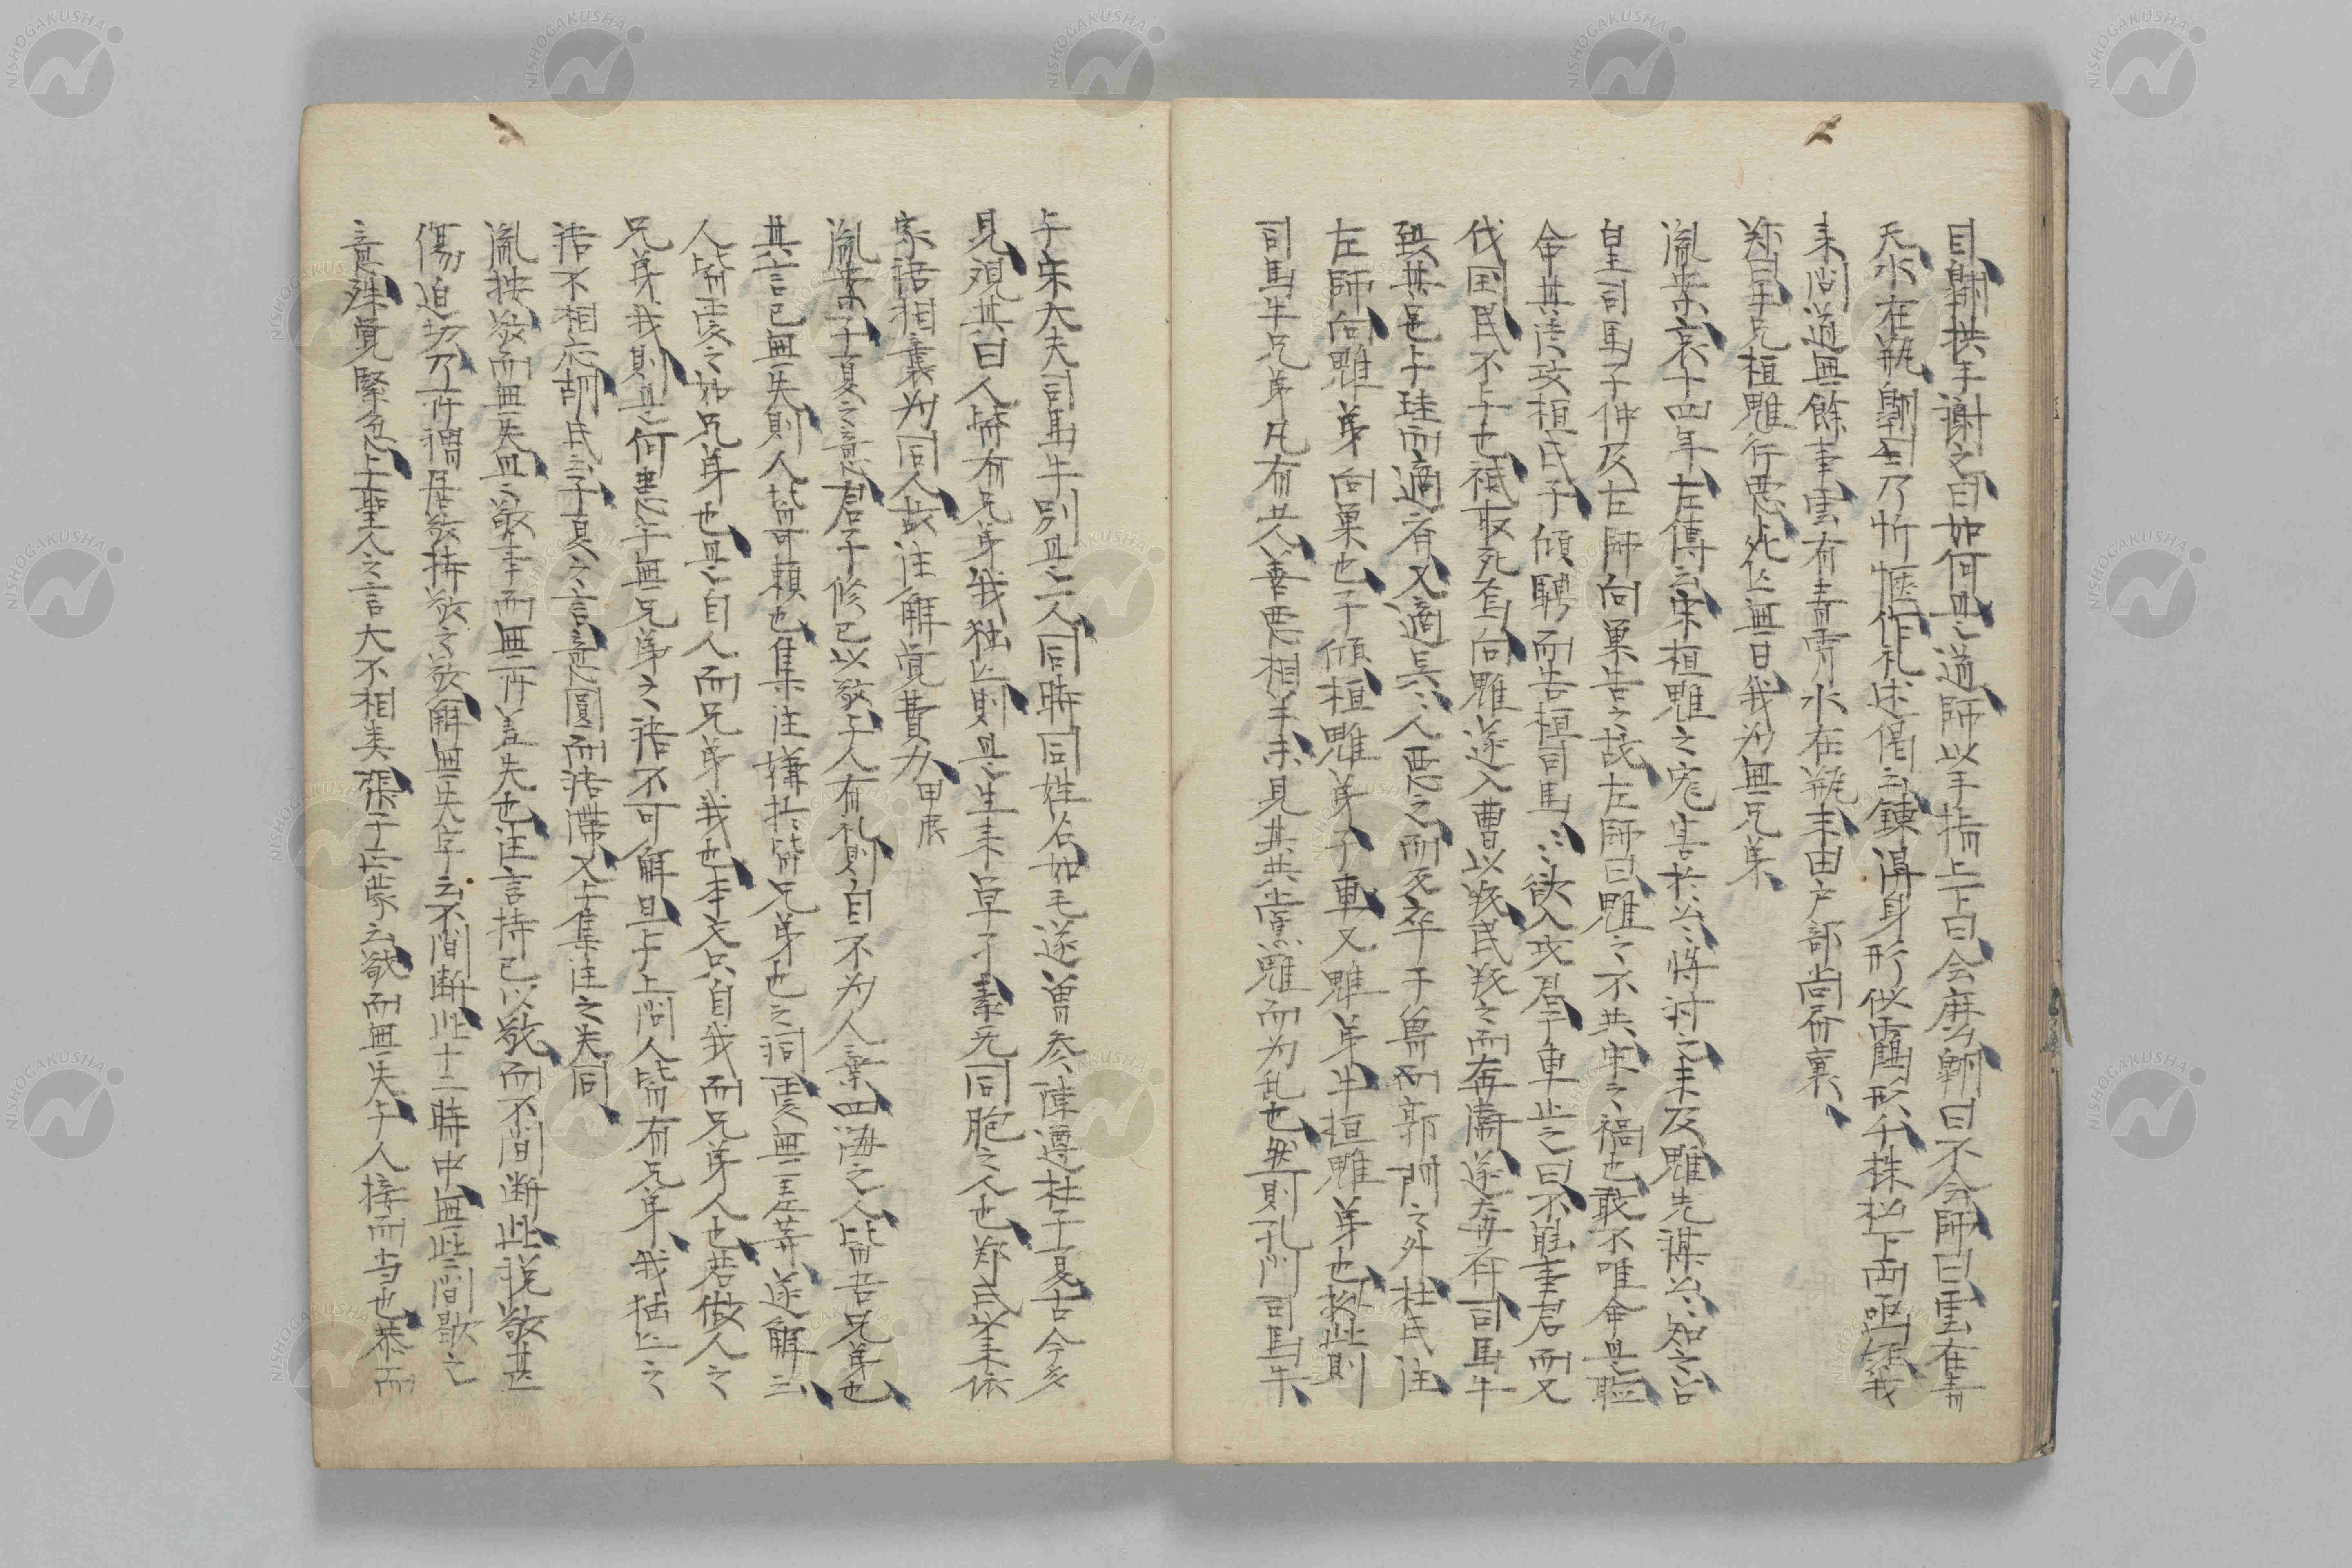 目翺拱手謝之曰如何是道師以手指上下曰会麽翺曰不会師曰雲在青
天水在瓶翺乃忻愜作礼述偈云錬得身形似霍形千株松下両函経我
来問道無餘事雲有青霄水在瓶未由戸部尚書裏
郑曰牛兄桓魋行悪死亡無日我为無兄弟
胤案哀十四年左傳云宋桓魋之寵害於公〻将討之未及魋先謀公〻知之召
皇司馬子仲及左師向巢告之故左師曰魋之不共宋之禍也敢不唯命是聴
命其
伐国民不与也祗取死焉向魋遂入曹以叛民叛之而奔衛遂奔斉司馬牛
致其邑与珪而適斉又適吴〻人悪之而反卒于魯郭門之外杜氏注
左師向魋弟向巢也子傾桓魋弟子車又魋弟牛桓魋弟也拠此則
司馬牛兄弟凡有五人善悪相半未見其共富魋而为乱也然則孔門司馬牛
与宋大夫司馬牛別是二人同時同姓名如毛遂曽参陳遵杜子夏古今多
見観其曰人皆有兄弟我独亡則是生来单了素无同胞之人也郑氏以来依
家語相襲为同人故注解覚費力 甲辰
胤案子夏之意君子修己以敬与人有礼則自不为人棄四海之人皆吾兄弟也
其言已無失則人皆可頼也集注嫌於皆兄弟也之詞
人皆愛之如兄弟也是自人而兄弟我也本文只自我而兄弟人也若做人之
兄弟我則是何患乎無兄弟之語不可解且与上問人皆有兄弟我独亡之
語不相応胡氏云子夏之言意圓而語滞又与集注之失同
胤按敬而無失是敬事而無所差失也注言持己以敬而不間断此説敬甚
傷迫切乃所謂居敬持敬之敬解無失字云不間断此十二時中無些間歇之
意殊覚緊急与聖人之言大不相类張子正蒙云敬而無失与人接而当也恭而